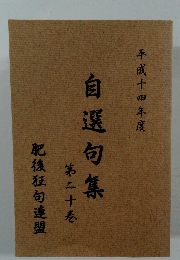 平成十四年度
自選句集
第二十巻
肥後狂句連盟